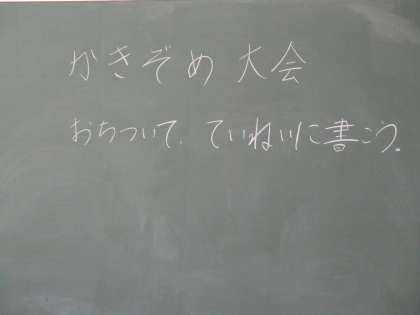 かきぞめ大会
おちついて、ていねいに書こう。